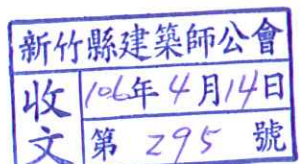 新竹縣建築師公會
收文
106年4月14日
第 295 號